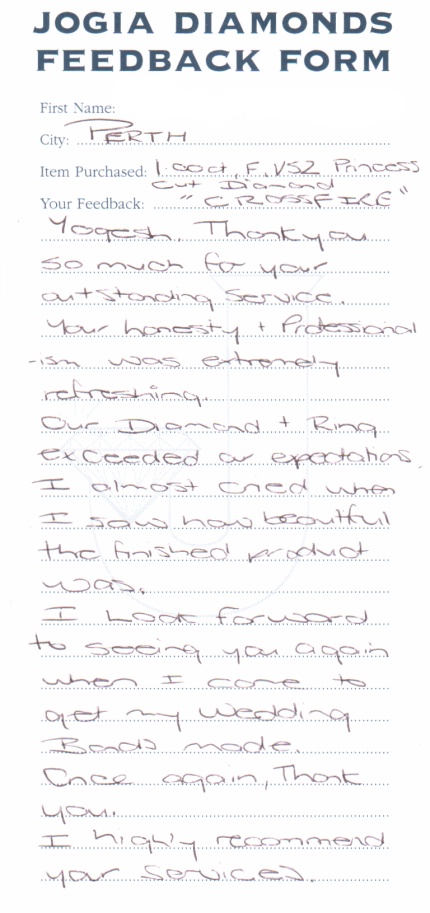 JOGIA DIAMONDS
FEEDBACK FORM
First Name:
City: PERTH
Item Purchased: 1.00ct, F, VS2 Princess
Cut Diamond
Your Feedback: "CROSSFIRE"
Yogesh, Thankyou
so much for your
outstanding service.
Your honesty + Professional
-ism was extremely
refreshing.
Our Diamond + Ring
exceeded our expectations.
I almost cried when
I saw how beautiful
the finished product
was.
I Look forward
to seeing you again
when I come to
get my wedding
Bands made.
Once again, Thank
you.
I highly recommend
your services.